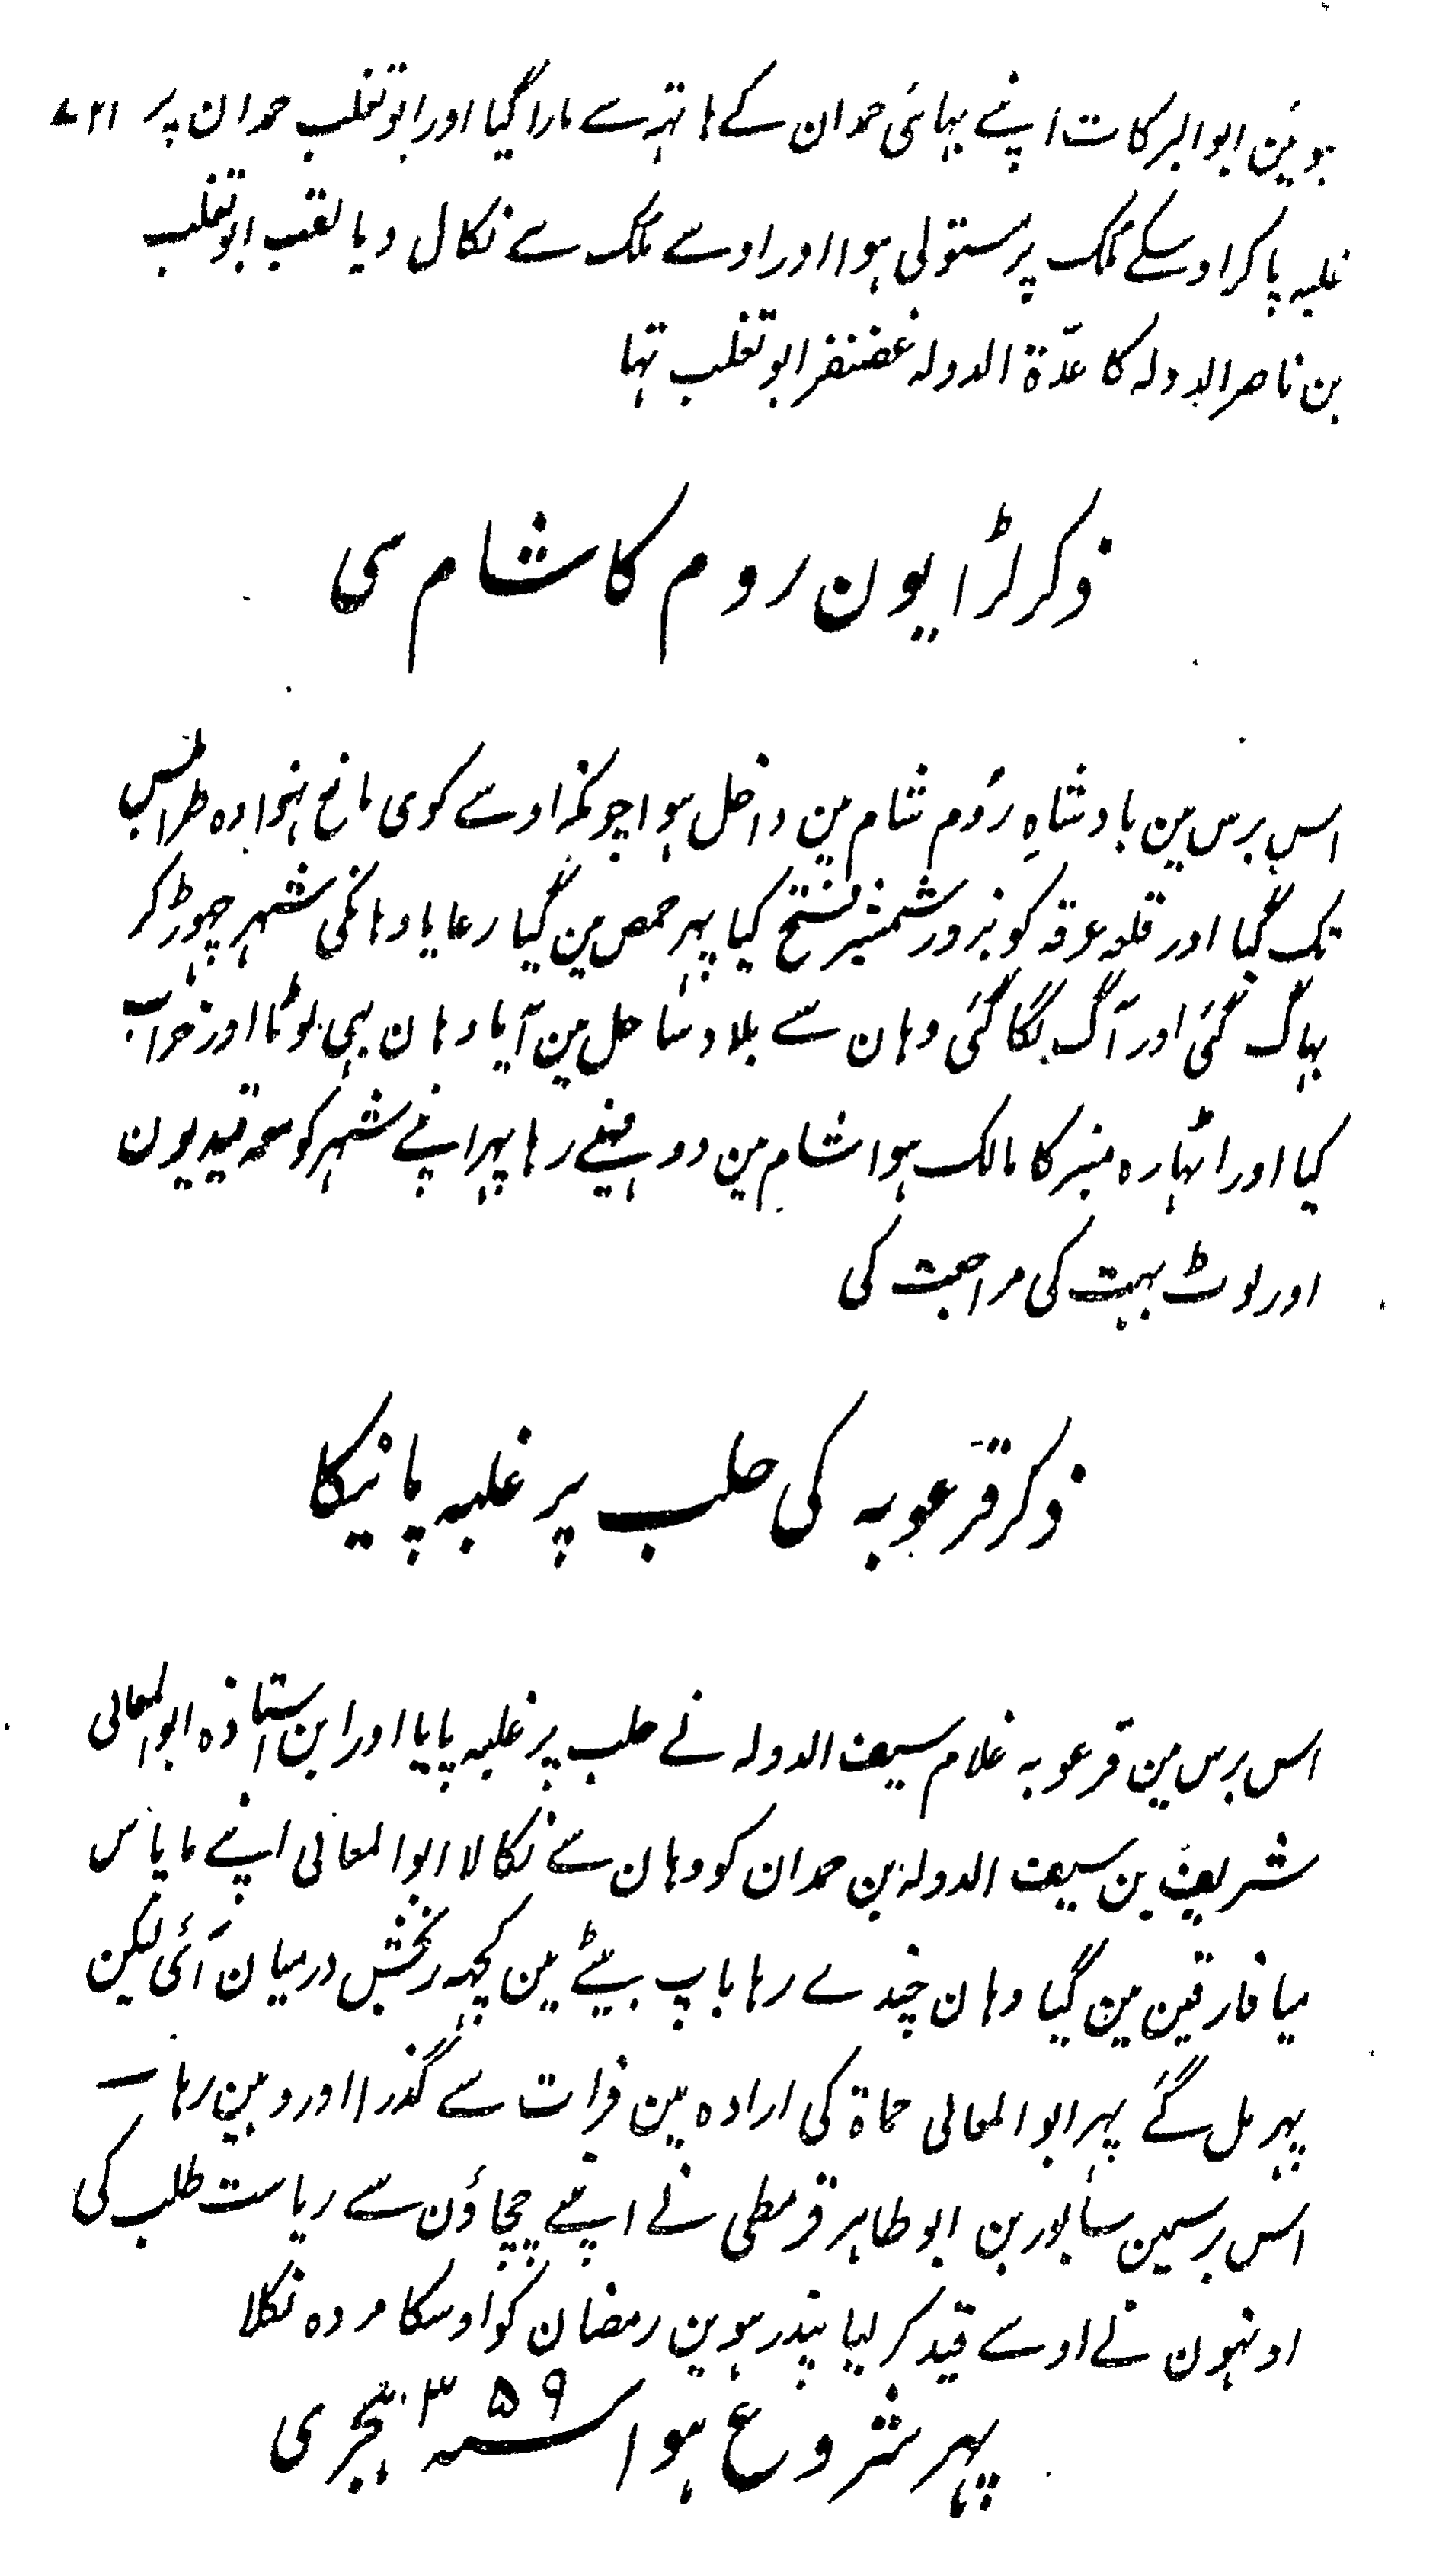 ہوئین ابو البرکات اپنے بہائی حمدان کے ہاتہہ سے مارا گیا اور ابو تغلب حمدان پر
غلبہ پاکر اوسکے ملک پر مستولی ہوا اور اوسے ملک سے نکال دیا لقب ابو تغلب
بن ناصر الدولہ کا عدّۃ الدولہ غضنفر ابو تغلب تہا
ذکر لڑایون روم کا شام سی
اس برس مین بادشاہِ رُوم شام مین داخل ہوا چونکہ اوسے کوی مانع نہوا وہ طرابلس
تک گیا اور قلعہ عرقہ کو بزور شمشیر فتح کیا پہر حمص مین گیا رعایا وہانکی شہر چہوڑ کر
بہاگ گئی اور آگ لگا گئی وہان سے بلاد ساحل مین آیا وہان بہی لوٹا اور خراب
کیا اور اٹہارہ منبر کا مالک ہوا شام مین دو مہینے رہا پہر اپنے شہر کو معہ قیدیون
اور لوٹ بہت کی مراجعت کی
ذکر قرعوبہ کی حلب پر غلبہ پانیکا
اس برس مین قرعوبہ غلام سیف الدولہ نے حلب پر غلبہ پایا اور ابن استاذہ ابو المعالی
شریف بن سیف الدولہ بن حمدان کو وہان سے نکالا ابو المعالی اپنے ما پاس
میافارقین مین گیا وہان چندے رہا باپ بیٹے مین کچہہ رنجش درمیان آئی لیکن
پہر مل گئے پہر ابو المعالی حماۃ کی ارادہ مین فرات سے گذرا اور وہین رہا
اس برسمین سابور بن ابو طاہر قرمطی نے اپنے چچاؤن سے ریاست طلب کی
اونہون نے اوسے قید کر لیا پندرہوین رمضان کو اوسکا مردہ نکلا
پہر شروع ہوا سنہ ۳۵۹ ہجری